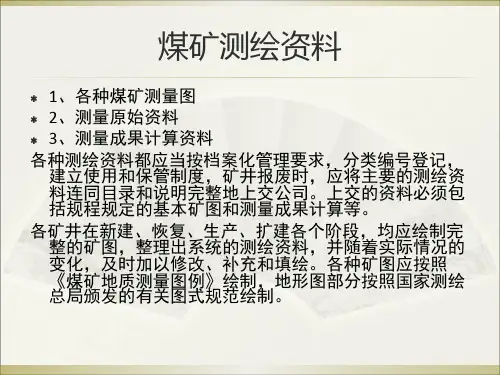 煤矿测绘资料
⁕ 1、各种煤矿测量图
⁕ 2、测量原始资料
⁕ 3、测量成果计算资料
各种测绘资料都应当按档案化管理要求，分类编号登记，
建立使用和保管制度，矿井报废时，应将主要的测绘资
料连同目录和说明完整地上交公司。上交的资料必须包
括规程规定的基本矿图和测量成果计算等。
各矿井在新建、恢复、生产、扩建各个阶段，均应绘制完
整的矿图，整理出系统的测绘资料，并随着实际情况的
变化，及时加以修改、补充和填绘。各种矿图应按照
《煤矿地质测量图例》绘制，地形图部分按照国家测绘
总局颁发的有关图式规范绘制。